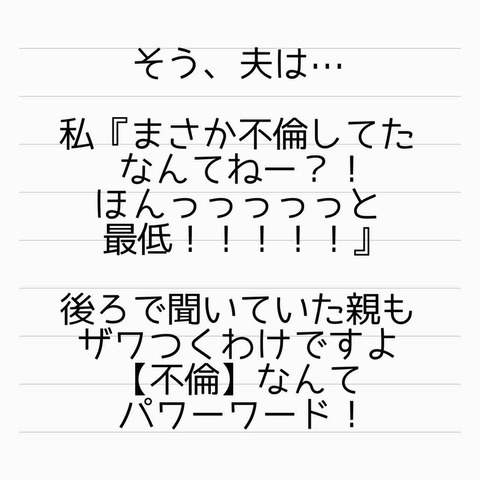 そう、夫は…
私『まさか不倫してた
なんてねー？！
ほんっっっっっと
最低！！！！！』
後ろで聞いていた親も
ザワつくわけですよ
【不倫】なんて
パワーワード！